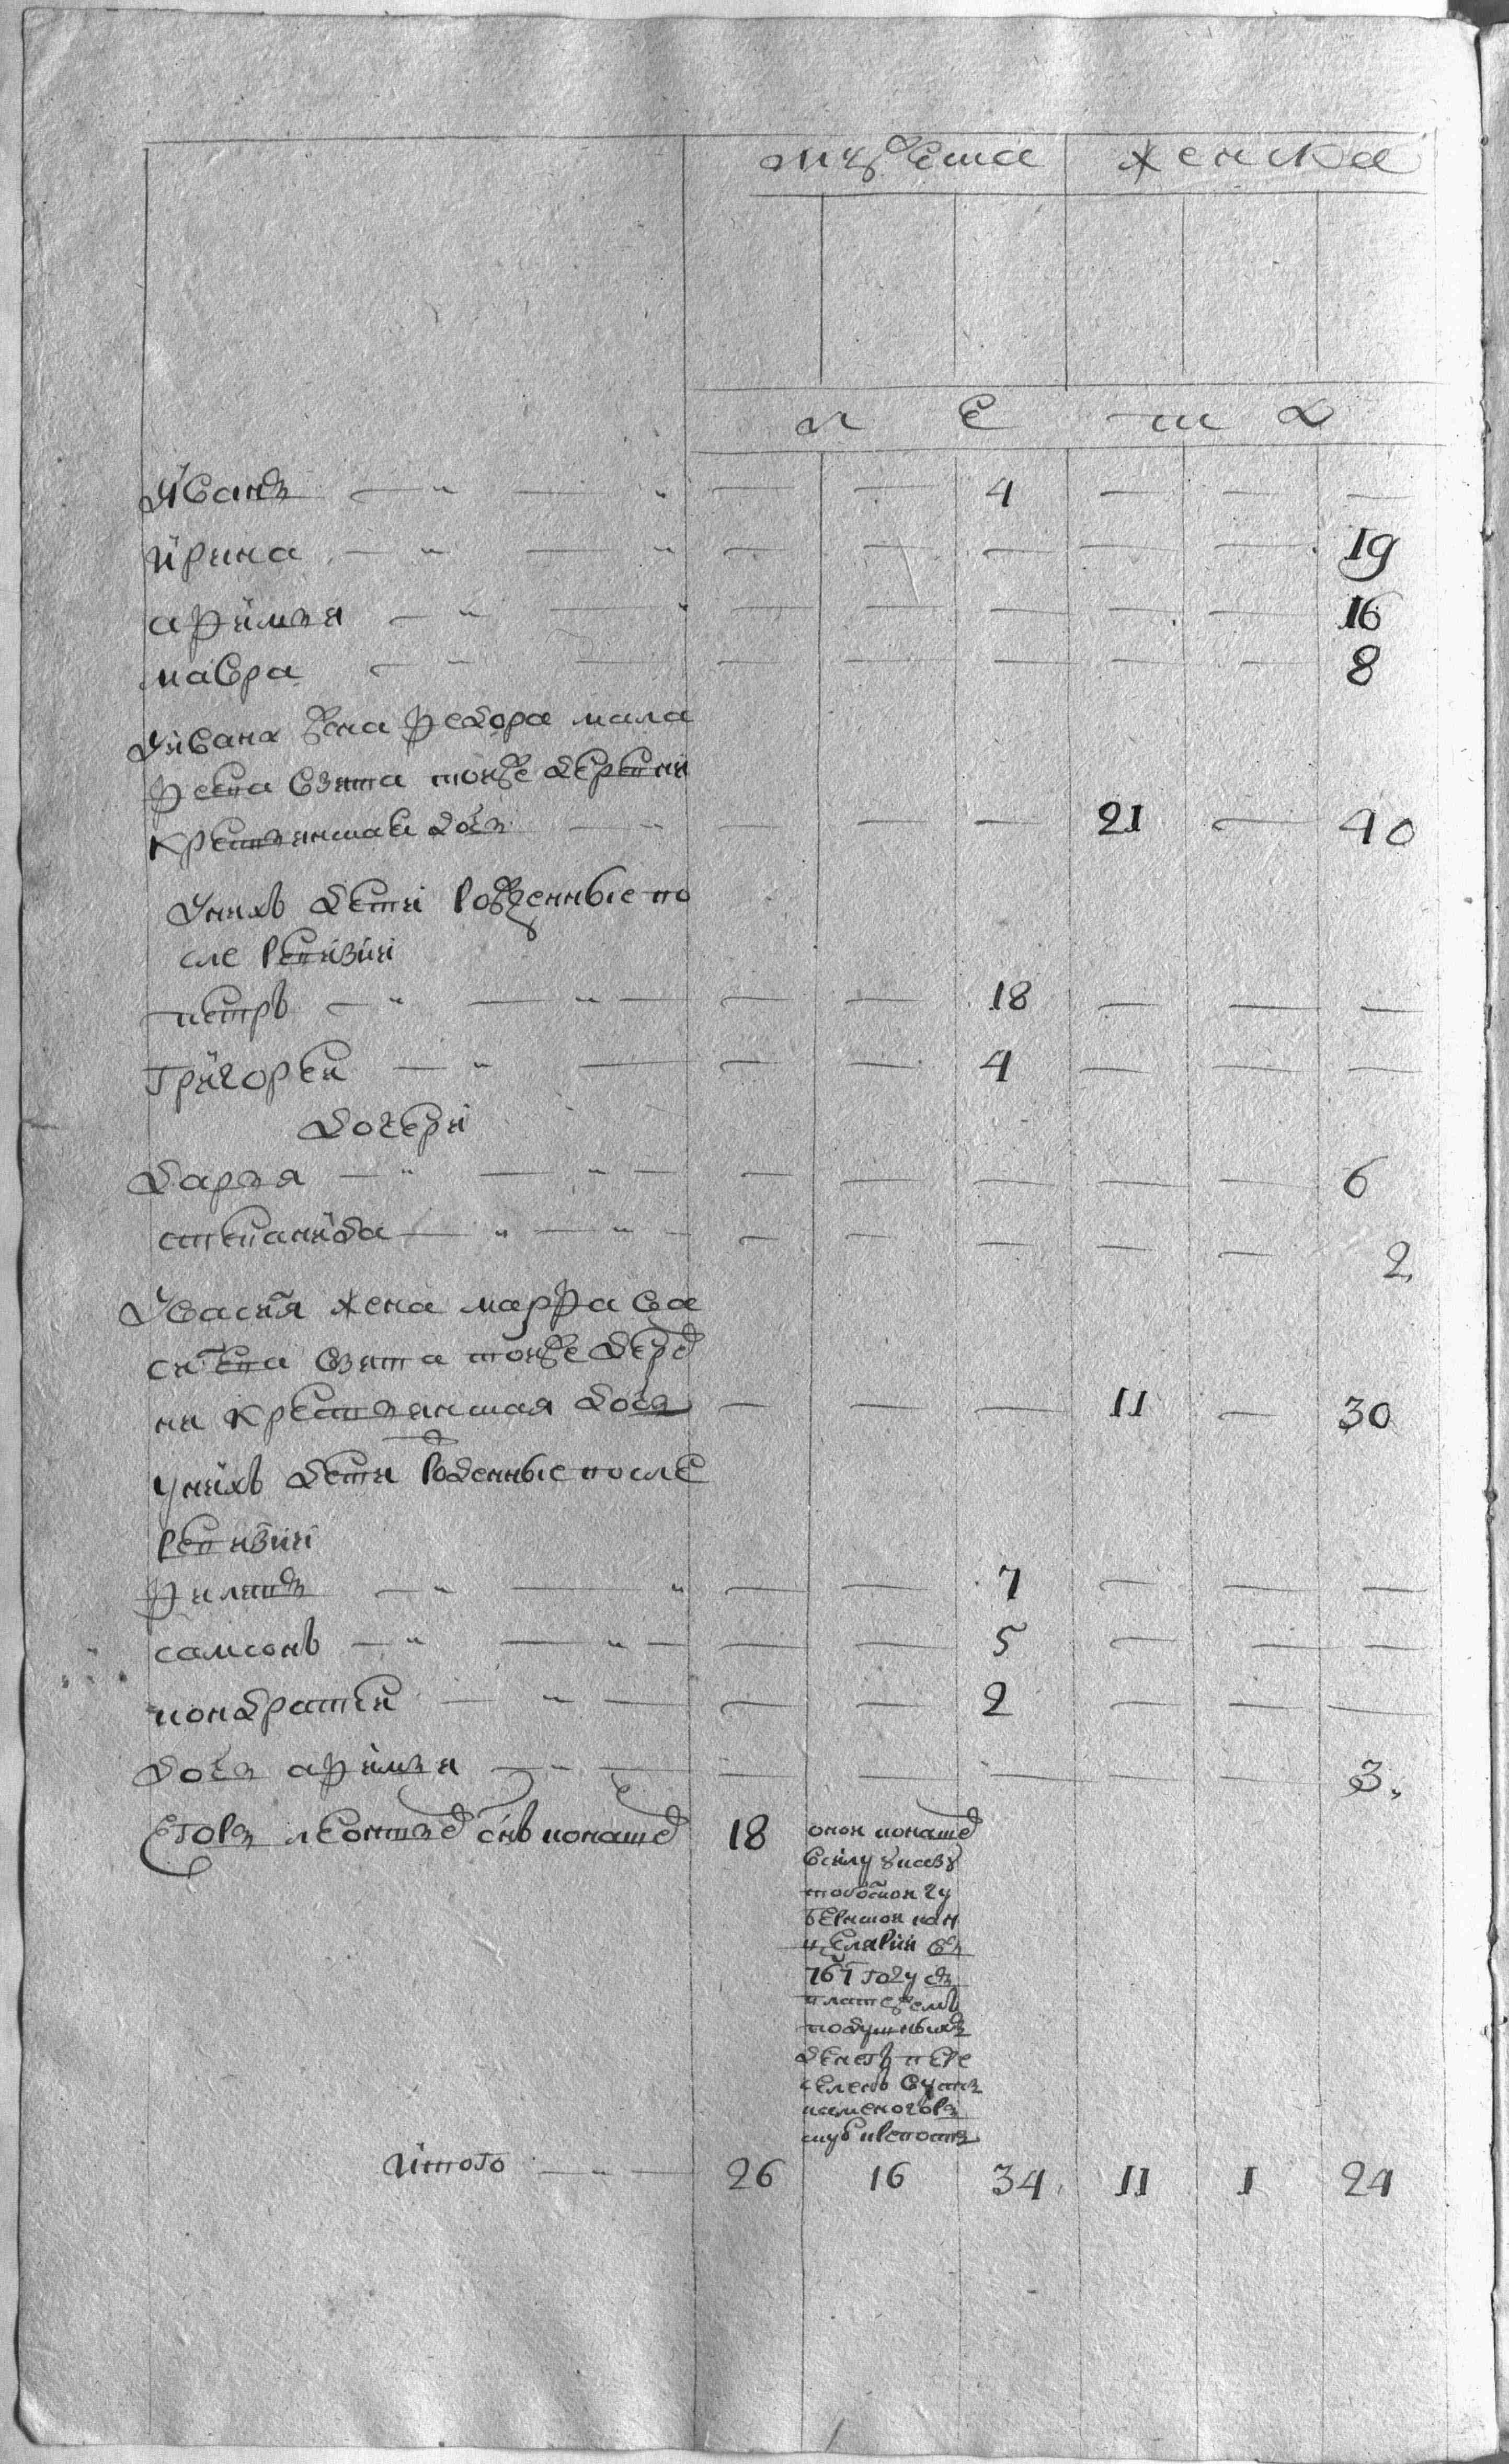 мужеска женска
л е т д
Иванъ 4
Ирина 19
афимья 16
мавра 8
У ивана жена федора мала
феева взята тойже деревни
крестьянская дочь 21 40
У нихъ дети рожденные по
сле ревизии
петръ 18
Григорей 4
дочери
дарья 6
степанида 2
У васил̃я жена марфа ва
сил̃ева взята тойже дерев
ни крестьянская дочь 11 30
У нихъ дети рожденные после
ревизии
филатъ 7
самсонъ 5
кондратей 2
дочь афимья 3
Егоръ леонтьев снъ 18 оной
всилу указу
тобольской гу
бернской кан
целярии въ
767 году съ
платежемъ
подушныхъ
денегъ пере
селенъ въусть
каменогорь
скую крепость
итого 26 16 34 11 1 24